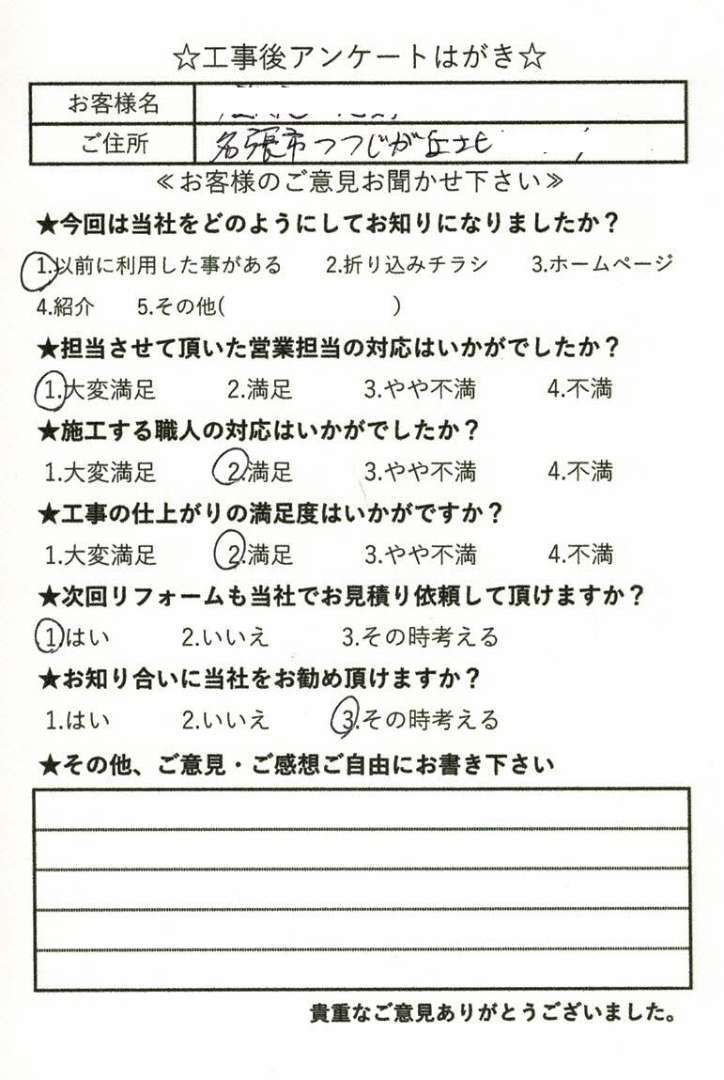 ☆工事後アンケートはがき☆
お客様名
ご住所 名張市つつじが丘北
≪お客様のご意見お聞かせ下さい≫
★今回は当社をどのようにしてお知りになりましたか？
1.以前に利用した事がある 2.折り込みチラシ 3.ホームページ
4.紹介 5.その他( )
★担当させて頂いた営業担当の対応はいかがでしたか？
1.大変満足 2.満足 3.やや不満 4.不満
★施工する職人の対応はいかがでしたか？
1.大変満足 2.満足 3.やや不満 4.不満
★工事の仕上がりの満足度はいかがですか？
1.大変満足 2.満足 3.やや不満 4.不満
★次回リフォームも当社でお見積り依頼して頂けますか？
1.はい 2.いいえ 3.その時考える
★お知り合いに当社をお勧め頂けますか？
1.はい 2.いいえ 3.その時考える
★その他、ご意見・ご感想ご自由にお書き下さい
貴重なご意見ありがとうございました。